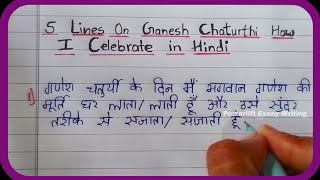 5 Lines On Ganesh Chaturthi How
I Celebrate in Hindi
1) गणेश चतुर्थी के दिन मैं भगवान गणेश की
मूर्ति घर लाता/लाती हूँ और उसे सुंदर
तरीके से सजाता/सजाती हूँ
Powerlift Essay Writing